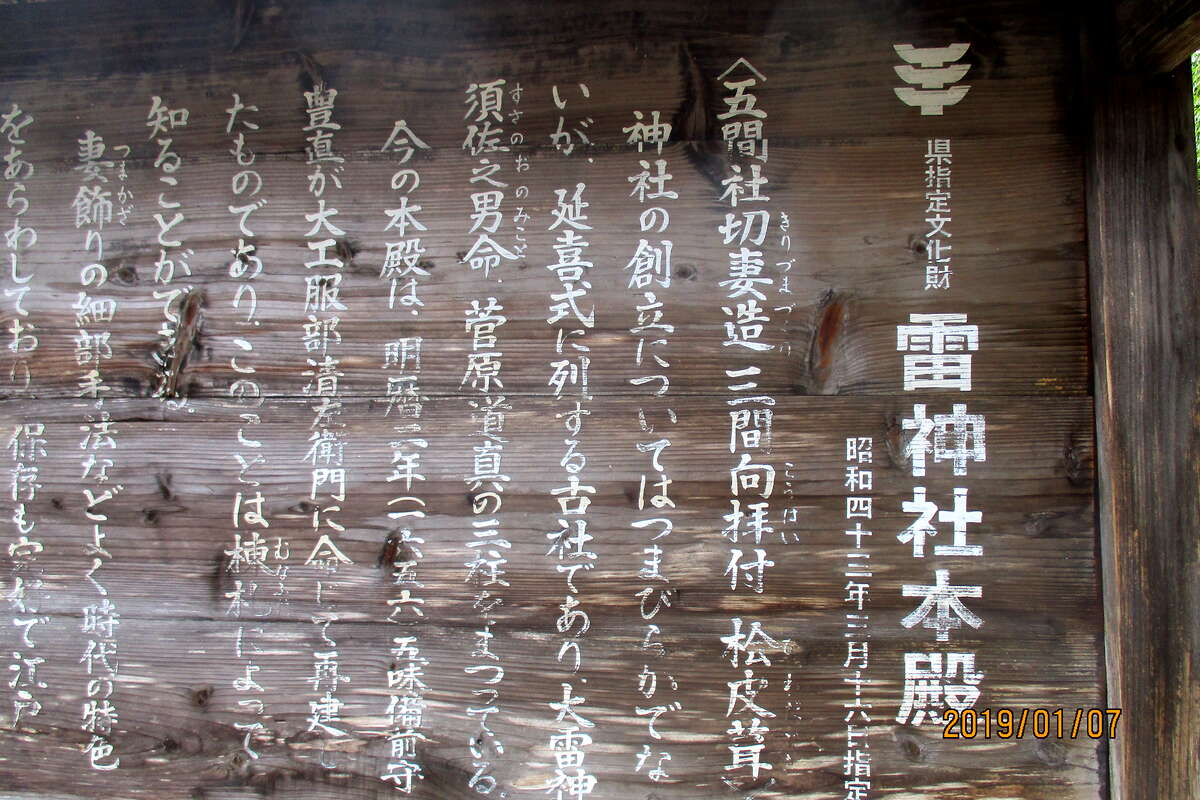 県指定文化財 雷神社本殿
昭和四十三年三月十六日指定
〈五間社切妻造 三間向拝付 桧皮葺
きりづまづくり こうはい
神社の創立についてはつまびらかでな
いが、延喜式に列する古社であり、大雷神
須佐之男命、菅原道真の三柱をまつっている。
すさのおのみこと
今の本殿は、明暦二年(一六五六)五味備前守
豊直が大工服部清左衛門に命じて再建し
たものであり、このことは棟札によって
知ることができる。
妻飾りの細部手法などよく時代の特色
つまかざ
をあらわしており 保存も完好で江戸
2019/01/07